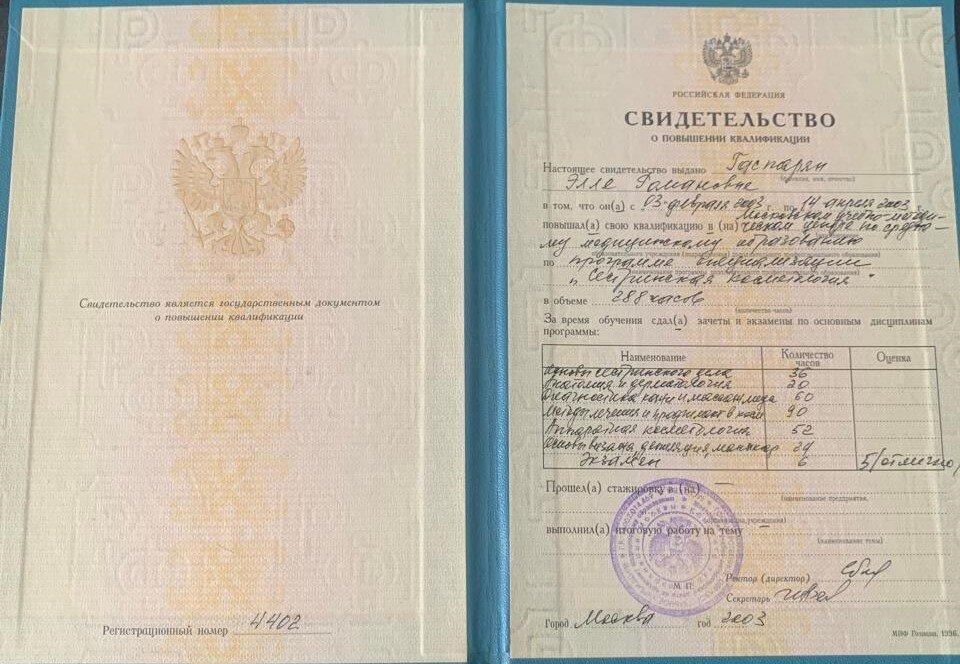 Свидетельство является государственным документом
о повышении квалификации
Регистрационный номер 4402
РОССИЙСКАЯ ФЕДЕРАЦИЯ
СВИДЕТЕЛЬСТВО
О ПОВЫШЕНИИ КВАЛИФИКАЦИИ
Настоящее свидетельство выдано Гаспарян
(фамилия, имя, отчество)
Элле Романовне
в том, что он(а) с 03 февраля 2003 г. по 14 апреля 2003 г.
повышал(а) свою квалификацию в (на) Московском учебно-методи-
ческом центре по средне-
му медицинскому образованию
по программе специализации
"Сестринская косметология"
в объеме 288 часов
(количество часов)
За время обучения сдал(а) зачеты и экзамены по основным дисциплинам
программы:
Наименование Количество часов Оценка
Основы сестринского дела 36
Анатомия и дерматология 20
Диагностика кожи и массаж лица 60
Методы лечения и 90
Аппаратная косметология 52
Основы визажа, 24
Экзамен 6 5/отлично/
Прошел(а) стажировку в (на) —
(наименование предприятия,
организации, учреждения)
выполнил(а) итоговую работу на тему —
(наименование темы)
М.П.
Ректор (директор)
Секретарь
Город Москва год 2003
МПФ Гознак. 1996.